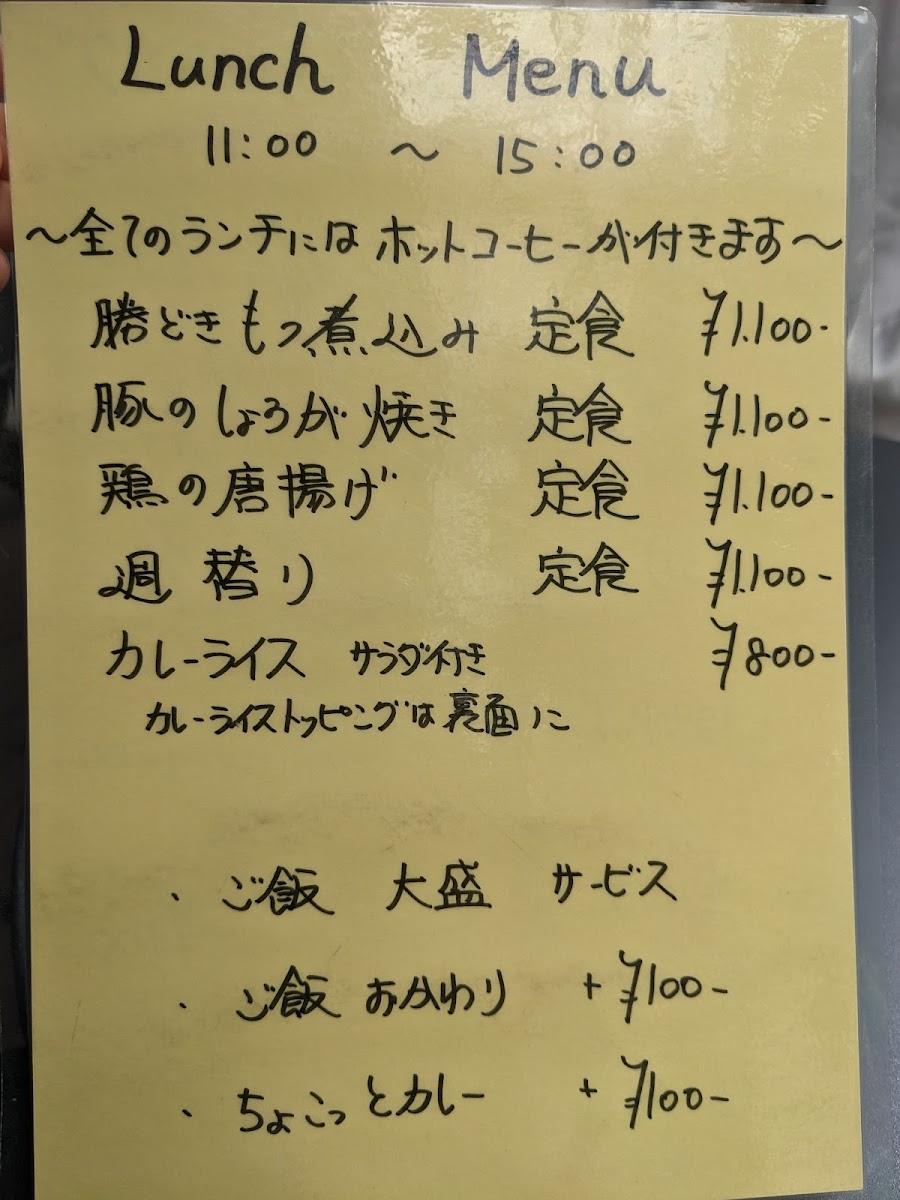 Lunch Menu
11:00 ~ 15:00
~全てのランチにはホットコーヒーが付きます~
勝どきもつ煮込み 定食 ¥1.100-
豚のしょうが焼き 定食 ¥1.100-
鶏の唐揚げ 定食 ¥1.100-
週替り 定食 ¥1.100-
カレーライス サラダ付き ¥800-
カレーライストッピングは裏面に
・ご飯 大盛 サービス
・ご飯 おかわり + ¥100-
・ちょこっとカレー + ¥100-